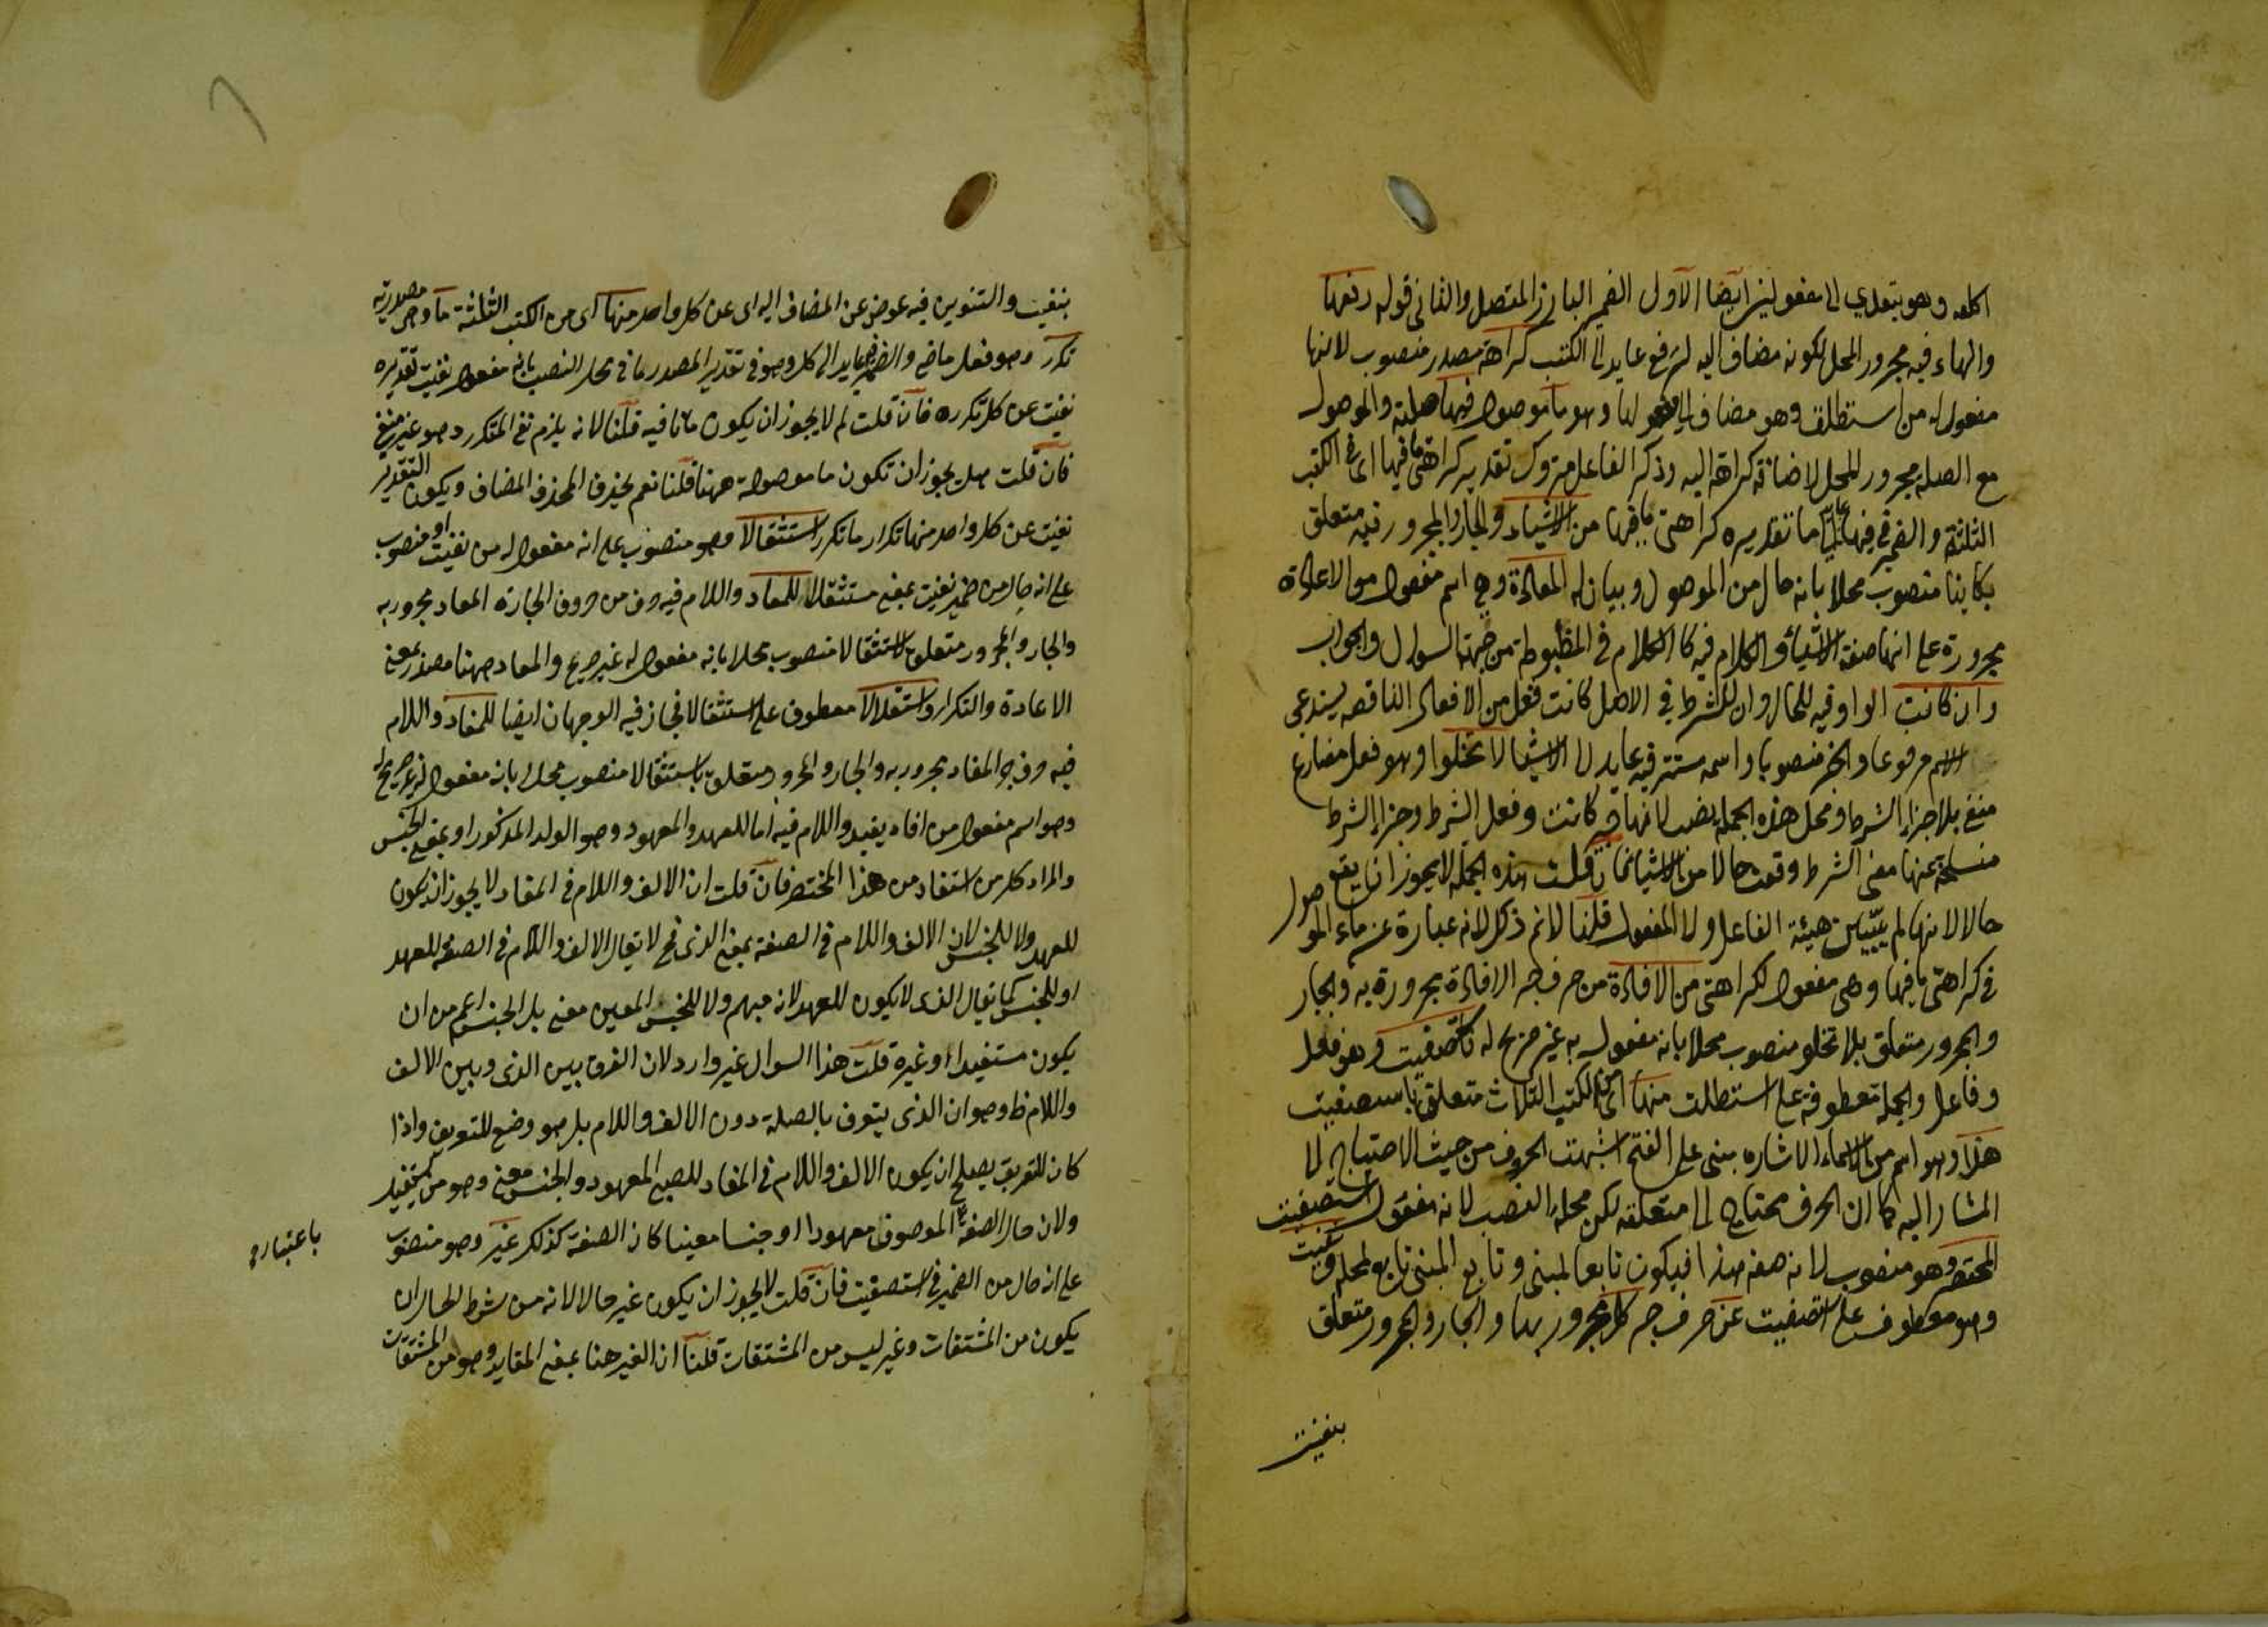 اكلمه وهو يتعدي الى مفعولين ايضا الاول الضمير البارز المتصل والثاني قوله رفعها
والهاء فيه مجرور المحل لكونه مضاف اليه لرفع عايد الى الكتب كراهة مصدر منصوب لانها
مفعول له من استطلت وهو مضاف الى وهو ما موصول فيها صلته والموصول
مع الصله مجرور المحل لاضافة كراهة اليه وذكر الفاعل متروك تقديره كراهتى ما فيها اى فى الكتب
الثلثة والضمير فى فيها تقديره كراهتى ما فيها من الاشياء والجار والمجرور فيه متعلق
بكاينا منصوب محلا بانه حال من الموصول وبيان له المعادة وهى اسم مفعول من الاعادة
مجرورة على انها صفة الاشياء والكلام فيه كالكلام فى المضبوطة من جهة السوال والجواب
وان كانت الواو فيه للحال وان للشرط فى الاصل كانت فعل من الافعال الناقصه يستدعى
الاسم مرفوعا والخبر منصوبا واسمه مستتر فيه عايد الى الاشياء لا تخلوا وهو فعل مضارع
منفى بلا جزاء الشرط ومحل هذه الجملة نصب لانها خبر كانت وفعل الشرط وجزاء الشرط
منسلخة عنها معنى الشرط وقعت حالا من الاشياء فان قلت هذه الجملة لا يجوز ان يقع
حالا لانها لم يتبين هيئة الفاعل ولا المفعول قلنا لانم ذلك لانه عبارة عن ماء الموصول
فى كراهتى ما فيها وهى مفعول لكراهتى من الافادة من حرف جر الافادة مجرورة به والجار
والمجرور متعلق بلا تخلو منصوب محلا بانه مفعول به غير صريح له فاستصفيت وهو فعل
وفاعل والجملة معطوفة على استطلت منها اى من الكتب الثلاث متعلق باستصفيت
هذا وهو اسم من الاسماء الاشاره مبنى على الفتح اشبهت الحروف من حيث الاحتياج الى
المشار اليه كما ان الحرف محتاج الى متعلقه لكن محله النصب لانه مفعول استصفيت
المختصر وهو منصوب لانه صفه هذا فيكون تابعا لمبنى وتابع المبنى تابع لمحله ونفيت
وهو معطوف على استصفيت عن حرف جر كل مجرور بها والجار والمجرور متعلق
بنفيت
بنفيت والتنوين فيه عوض عن المضاف اليه اى عن كل واحد منها اى من الكتب الثلثة ما وهى مصدرية
تكرر وهو فعل ماضى والضمير عايد الى كل وهو فى تقدير المصدر ما فى محل النصب بانه مفعول نفيت تقديره
نفيت عن كل تكرره فان قلت لم لا يجوز ان يكون ما نافيه قلنا لانه يلزم نفى المتكرر وهو غير منفى
فان قلت هل يجوز ان تكون ما موصولة ههنا قلنا نعم بحذف المضاف ويكون التقدير
نفيت عن كل واحد منها تكرار ما تكرر استثقالا وهو منصوب على انه مفعول له من نفيت او منصوب
على انه حال من ضمير نفيت بمعنى مستثقلا للمعاد واللام فيه حرف من حروف الجارة المعاد مجرور به
والجار والمجرور متعلق لاستثقالا منصوب محلا بانه مفعول له غير صريح والمعاد ههنا مصدر بمعنى
الاعادة والتكرار واستقلالا معطوف على استثقالا فجاز فيه الوجهان ايضا للمفاد واللام
فيه حرف جر المفاد مجرور به والجار والمجرور متعلق باستثقالا منصوب محلا بانه مفعول له غير صريح
وهو اسم مفعول من افاد يفيد واللام فيه اما للعهد والمعهود وهو الولد المذكور او بمعنى الجنس
والمراد كل من استفاد من هذا المختصر فان قلت ان الالف واللام فى المفاد لا يجوز ان يكون
للعهد ولا للجنس لان الالف واللام فى الصفة بمعنى الذى فح لا يقال الالف واللام فى الصفة للعهد
او للجنس كما يقال الذى لا يكون للعهد لانه مبهم ولا للجنس المعين معنى بل الجنس اعم من ان
يكون مستفيدا او غيره قلت هذا السوال غير وارد لان الفرق بين الذى وبين الالف
واللام ظ وهو ان الذى يتعرف بالصلة دون الالف واللام بل هو وضع للتعريف واذا
كان للتعريف يصلح ان يكون الالف واللام فى المفاد للصبى المعهود والجنس معنى وهو من يستفيد
ولان حال الصفة الموصوف معهودا او جنسا معينا كان الصفة كذلك غير وهو منصوب
باعتباره
على انه حال من الضمير فى استصفيت فان قلت لا يجوز ان يكون غير حالا لانه من شرط الحال ان
يكون من المشتقات وغير ليس من المشتقات قلنا ان الغير هنا بمعنى المغاير وهو من المشتقات